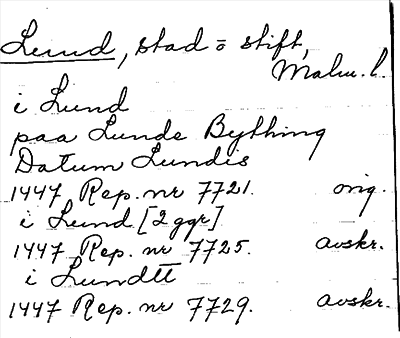 Lund, stad o stift,
Malm. l.
i Lund
paa Lunde Bything
Datum Lundis
1447 Rep. nr 7721. orig.
i Lund [2 ggr]
1447 Rep. nr 7725. avskr.
i Lundtt
1447 Rep. nr 7729. avskr.